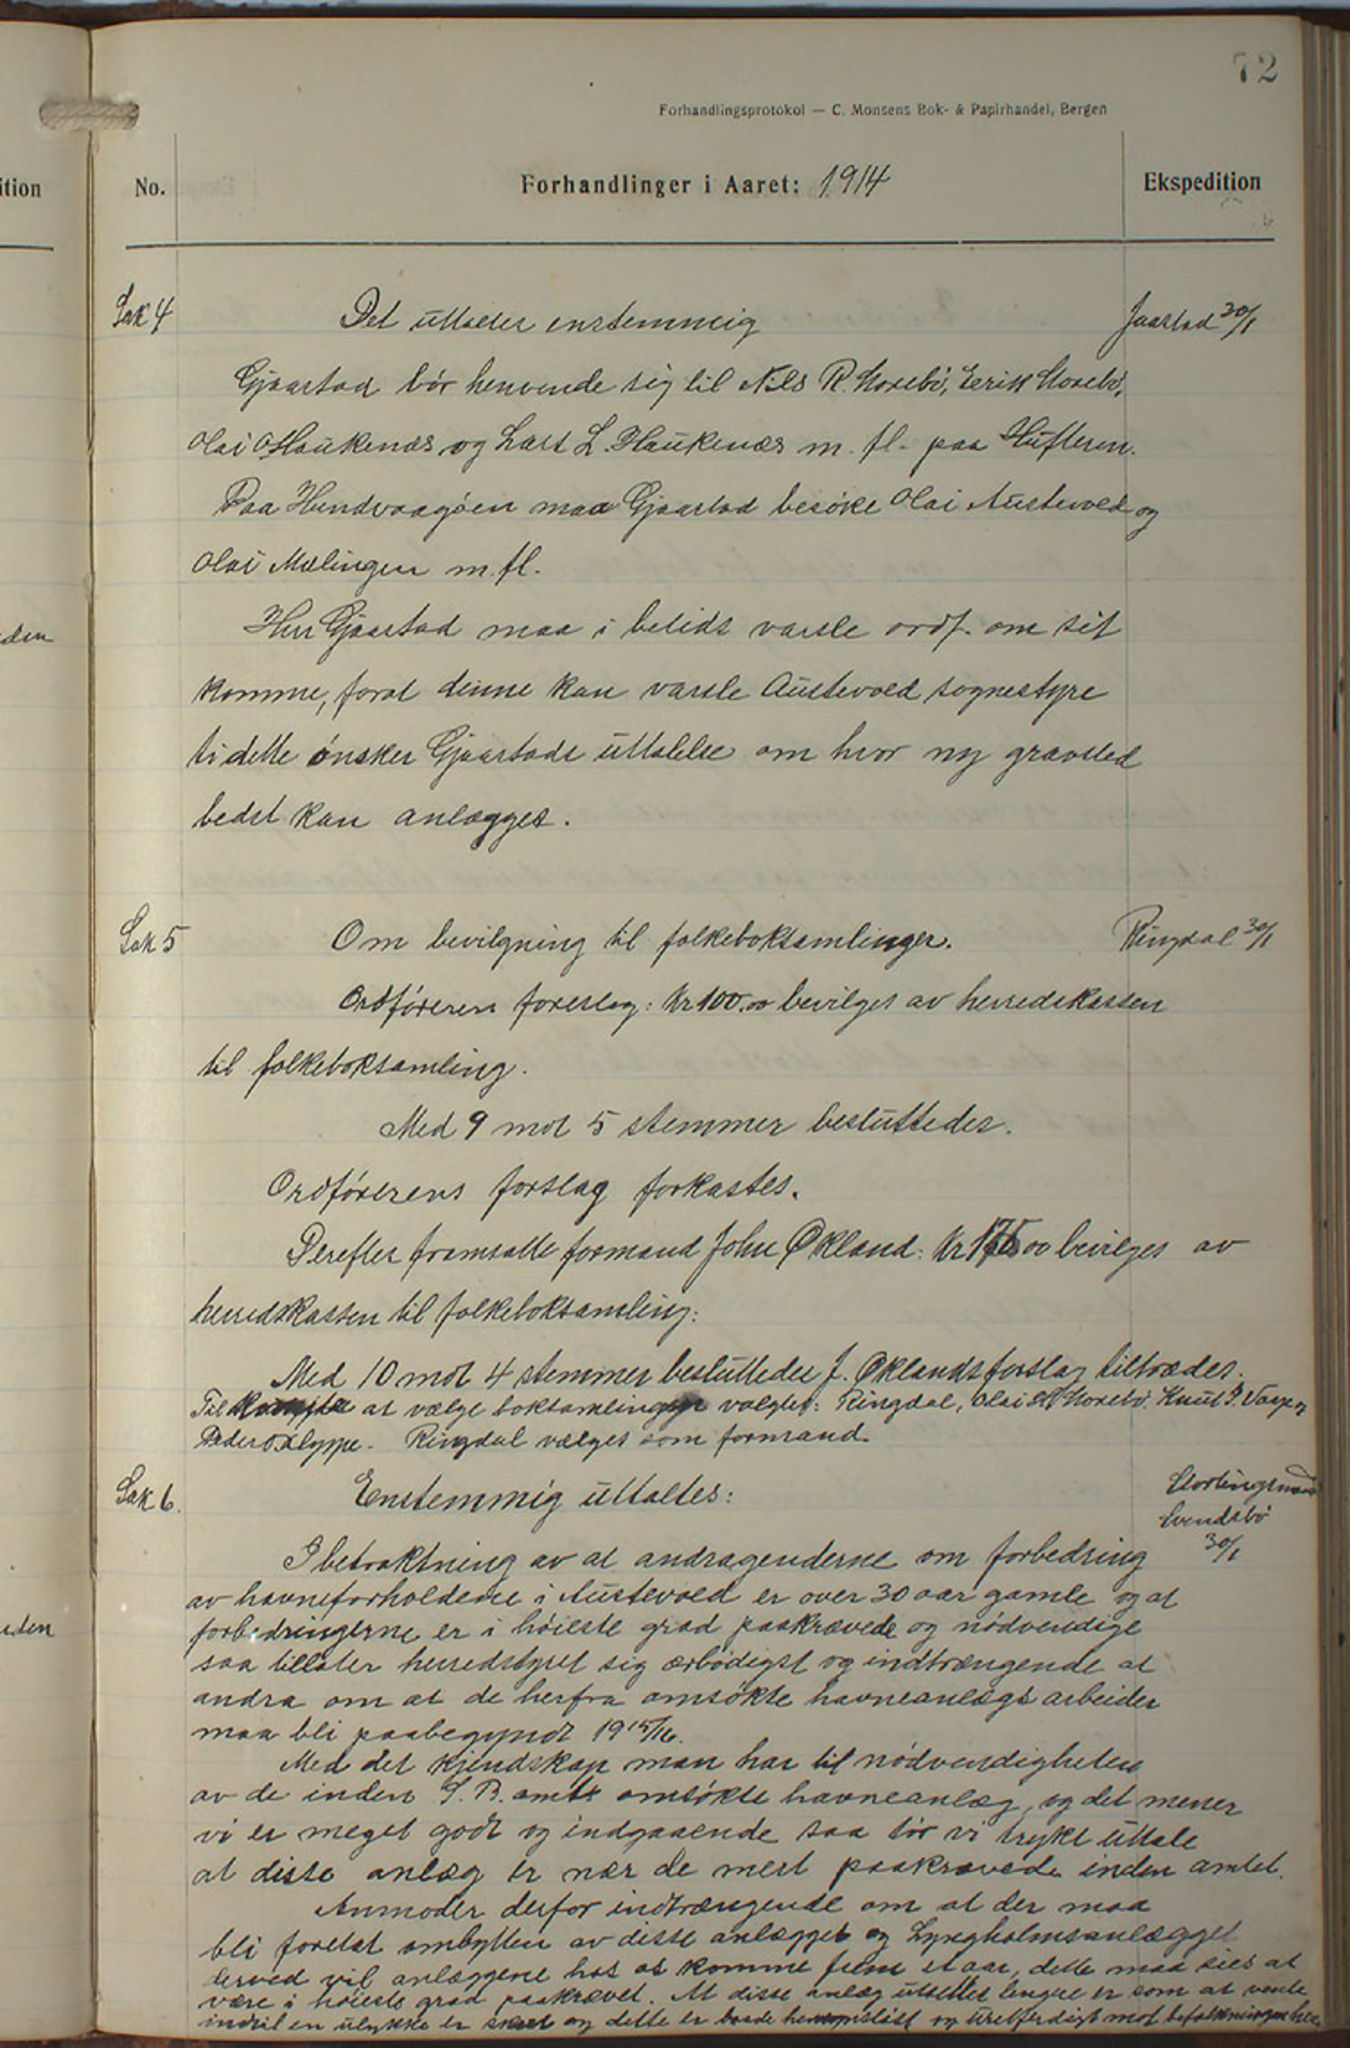 72
Forhandlingsprotokol — C. Monsens Bok- & Papirhandel, Bergen
ition No. Forhandlinger i Aaret: 1914 Ekspedition
Sak 4 Det uttales enstemmig Jaastad 30/1
Gjaastad bör henvende sig til Nils R. Storebö, Eerik Storebö,
Olai O Haukenæs og Lars L. Haukenæs m. fl. paa Hufteren.
Paa Hundvaagöen maa Gjaastad besöke Olai Austevold og
Olai Mælingen m. fl.
Herr Gjaastad maa i betids varsle ordf. om sit
komme, forat denne kan varsle Austevold sognestyre
ti dette önsker Gjaastads uttalelse om hvor ny gravsted
bedst kan anlægges.
Sak 5 Om bevilgning til folkeboksamlinger. Ringdal 30/1
Ordföreren foreslog: Kr 100.00 bevilges av herredskassen
til folkeboksamling.
Med 9 mot 5 stemmer besluttedes.
Ordförerens forslag forkastes.
Derefter fremsatte formand John Økland: Kr 175 00 bevilges av
herredskassen til folkeboksamling:
Med 10 mot 4 stemmer besluttedes J. Øklands forslag tiltrædes.
Til at vælge boksamlinger valgtes: Ringdal, Olai Storebö, Knut J. Vaage og
Peder O. Ringdal vælges som formand.
Sak 6. Enstemmig uttaltes: Stortingsmand
Svendsbö
30/1
I betraktning av at andragenderne om forbedring
av havneforholdene i Austevold er over 30 aar gamle og at
forbedringerne er i höieste grad paakrævede og nödvendige
saa tillater herredstyret sig ærbödigst og indtrængende at
andra om at de herfra omsökte havneanlægs arbeider
maa bli paabegyndt 1915/16.
Med det kjendskap man har til nödvendigheten
av de inden S. B. amt omsökte havneanlæg, og det mener
vi er meget godt og indgaaende saa tör vi trykt uttale
at disse anlæg er nær de mest paakrævede inden amtet.
Anmoder derfor indtrængende om at der maa
bli foretat ombytten av disse anlægget og Lyngholmsanlægget
derved vil anlæggene hos os komme frem et aar, dette maa sies at
være i höieste grad paakrævet. At disse anlæg utsettes lengere er som at vente
indtil en ulykke er skeet og dette er baade og uretferdigt mot befolkningen her.